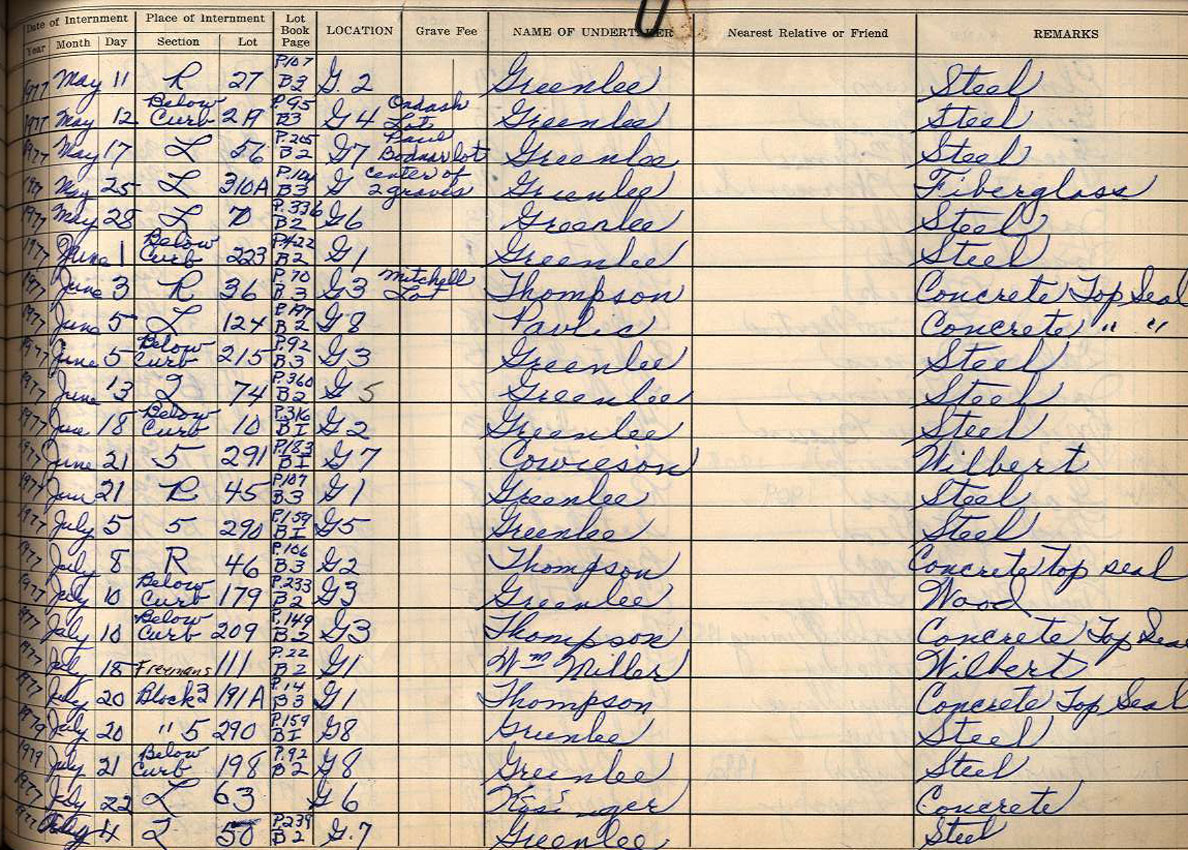 Date of Internment Place of Internment Lot Book Page LOCATION Grave Fee NAME OF UNDERTAKER Nearest Relative or Friend REMARKS
Year Month Day Section Lot
1977 May 11 R 27 P.107 B3 G. 2 Greenlee Steel
1977 May 12 Below Curb 219 P.95 B3 G4 Ondash Lot Greenlee Steel
1977 May 17 L 56 P.205 B2 G7 Paul Bodnar lot Greenlee Steel
1977 May 25 L 310A B3 G center of 2 graves Greenlee Fiberglass
1977 May 28 L P.336 B2 G6 Greenlee Steel
1977 June 1 Below Curb 223 P.422 B2 G1 Greenlee Steel
1977 June 3 R 36 P.70 B3 G3 Mitchell Lot Thompson Concrete Top Seal
1977 June 5 L 124 P.197 B2 G8 Pavlic Concrete " "
1977 June 5 Below Curb 215 P.92 B3 G3 Greenlee Steel
1977 June 13 L 74 P.360 B2 G 5 Greenlee Steel
1977 June 18 Below Curb 10 P.316 BI G2 Greenlee Steel
1977 June 21 5 291 P.183 BI G7 Cowieson Wilbert
1977 June 21 R 45 P.107 B3 G1 Greenlee Steel
1977 July 5 5 290 P.159 BI G5 Greenlee Steel
1977 July 8 R 46 P.106 B3 G2 Thompson Concrete top seal
1977 July 10 Below Curb 179 P.233 B2 G3 Greenlee Wood
1977 July 10 Below Curb 209 P.149 B2 G3 Thompson Concrete Top Seal
1977 July 18 Freemans 111 P.22 B2 G1 Wm Miller Wilbert
1977 July 20 Block 2 191A P.14 B3 G1 Thompson Concrete Top Seal
1979 July 20 " 5 290 P.159 BI G8 Greenlee Steel
1979 July 21 Below Curb 198 P.92 B2 G8 Greenlee Steel
1977 July 22 L 63 G 6 Concrete
1977 4 L 50 P.239 B2 G.7 Greenlee Steel